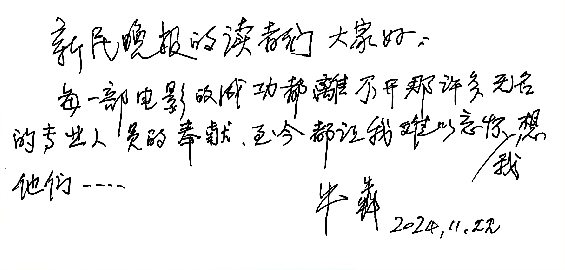 新民晚报的读者们 大家好：
每一部电影的成功都離不开那许多无名
的专业人员的奉献、至今都让我难以忘怀，我想
他们……
牛犇 2024.11.22